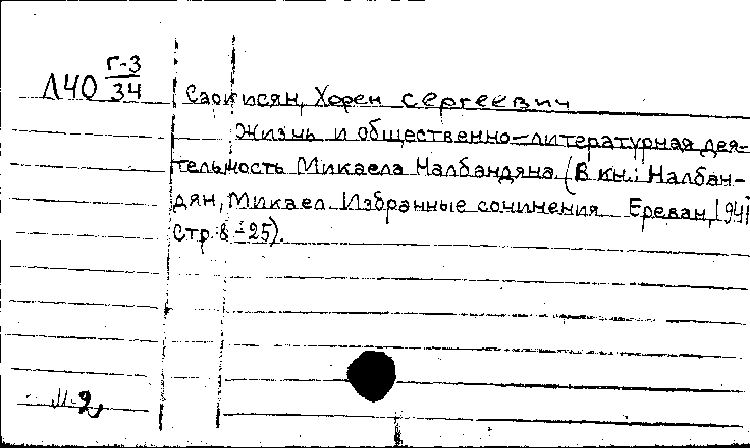 Л40 Г-3
34
Саркисян, Хорен Сергеевич
Жизнь и общественно-литературная дея-
тельность Микаела Налбандяна. (В кн.: Налбан-
дян, Микаел. Избранные сочинения. Ереван, 1941
Стр. 8-25).